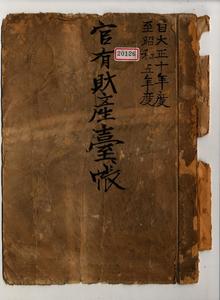 自大正十年度
至昭和五年度
官有財産臺帳
20126